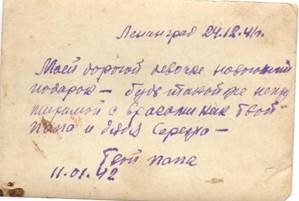 Ленинград 24.12.41г.
Моей дорогой девочке новогодний
подарок – будь такой же непри
миримой с врагами как твой
папа и дядя Сережа –
Твой папа
11.01.42